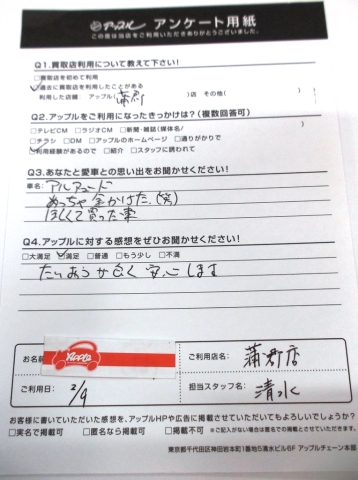 アップル アンケート用紙
この度は当店をご利用いただきありがとうございました。
Q1.買取店利用について教えて下さい!
□買取店を初めて利用
□過去に買取店を利用したことがある
利用した店舗 アップル( 蒲郡 )店 その他( )
Q2.アップルをご利用になったきっかけは?(複数回答可)
□テレビCM □ラジオCM □新聞・雑誌(媒体名/ )
□チラシ □DM □アップルのホームページ □通りがかりで
□利用経験があるので □紹介 □スタッフに誘われて
Q3.あなたと愛車との思い出をお聞かせください!
車名:アルファード
めっちゃ金かけた。(笑)
ほしくて買った車
Q4.アップルに対する感想をぜひお聞かせください!
□大満足 □満足 □普通 □もう少し □不満
たいおうが良く安心します
お名前
Apple
ご利用店名: 蒲郡店
ご利用日: 2/9
担当スタッフ名: 清水
お客様に書いていただいた感想を、アップルHPや広告に掲載させていただいてもよろしいでしょうか?
□実名で掲載可 □匿名なら掲載可 □掲載不可 ※ご記入がない場合は匿名での掲載とさせていただきます。
東京都千代田区神田岩本町1番地5清水ビル6F アップルチェーン本部